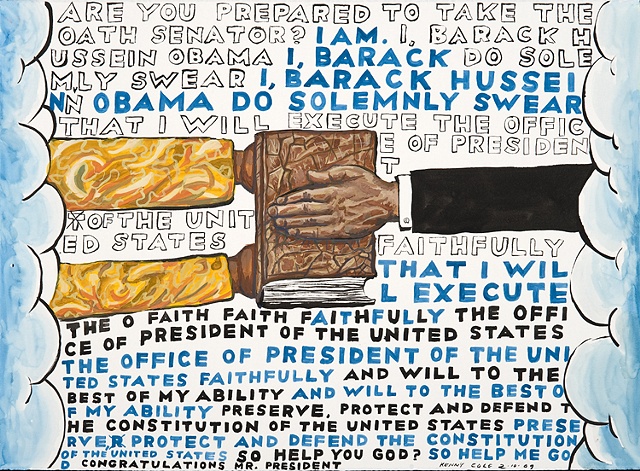 ARE YOU PREPARED TO TAKE THE
OATH SENATOR? I AM. I, BARACK H
USSEIN OBAMA I, BARACK DO SOLE
MLY SWEAR I, BARACK HUSSEI
N OBAMA DO SOLEMNLY SWEAR
THAT I WILL EXECUTE THE OFFIC
E OF PRESIDEN
T
OF THE UNIT
ED STATES FAITHFULLY
THAT I WIL
L EXECUTE
THE O FAITH FAITH FAITHFULLY THE OFFI
CE OF PRESIDENT OF THE UNITED STATES
THE OFFICE OF PRESIDENT OF THE UNI
TED STATES FAITHFULLY AND WILL TO THE
BEST OF MY ABILITY AND WILL TO THE BEST O
F MY ABILITY PRESERVE, PROTECT AND DEFEND T
HE CONSTITUTION OF THE UNITED STATES PRESE
RVE, PROTECT AND DEFEND THE CONSTITUTION
OF THE UNITED STATES SO HELP YOU GOD? SO HELP ME GO
D CONGRATULATIONS MR. PRESIDENT KENNY COLE 2-10-09